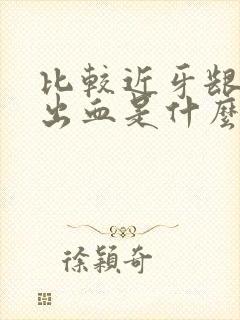 比較近牙龈
出血是什麼
徐穎奇